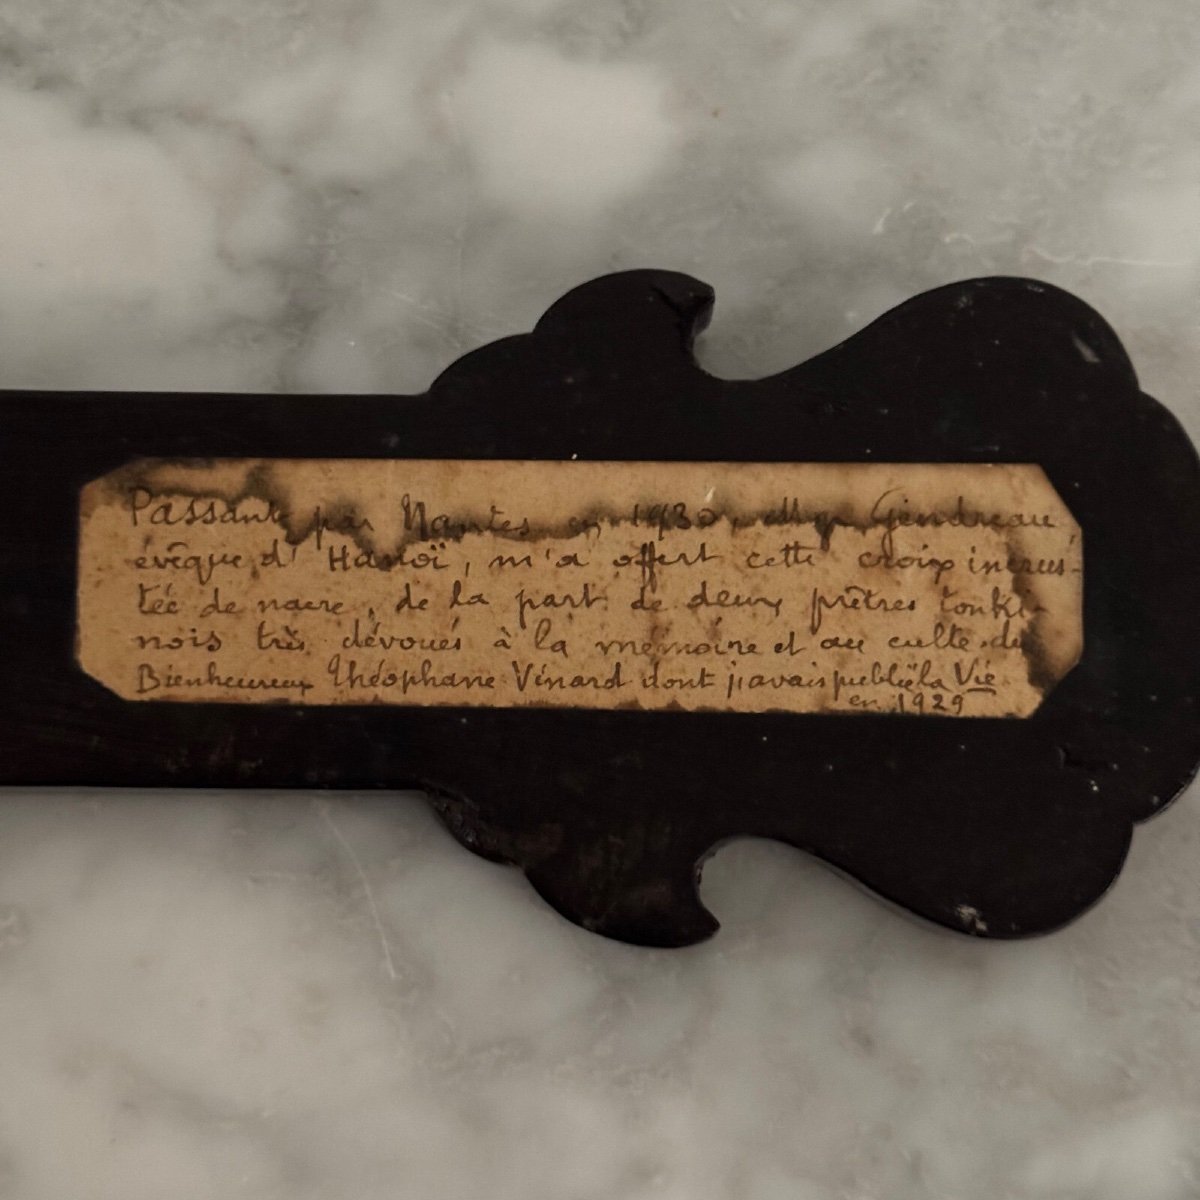 Passant par Nantes en 1930, Mgr Gendreau
évêque d' Hanoï, m'a offert cette croix incrus-
tée de nacre, de la part de deux prêtres tonki-
nois très dévoués à la mémoire et au culte du
Bienheureux Théophane Vénard dont j'avais publié la Vie
en 1929